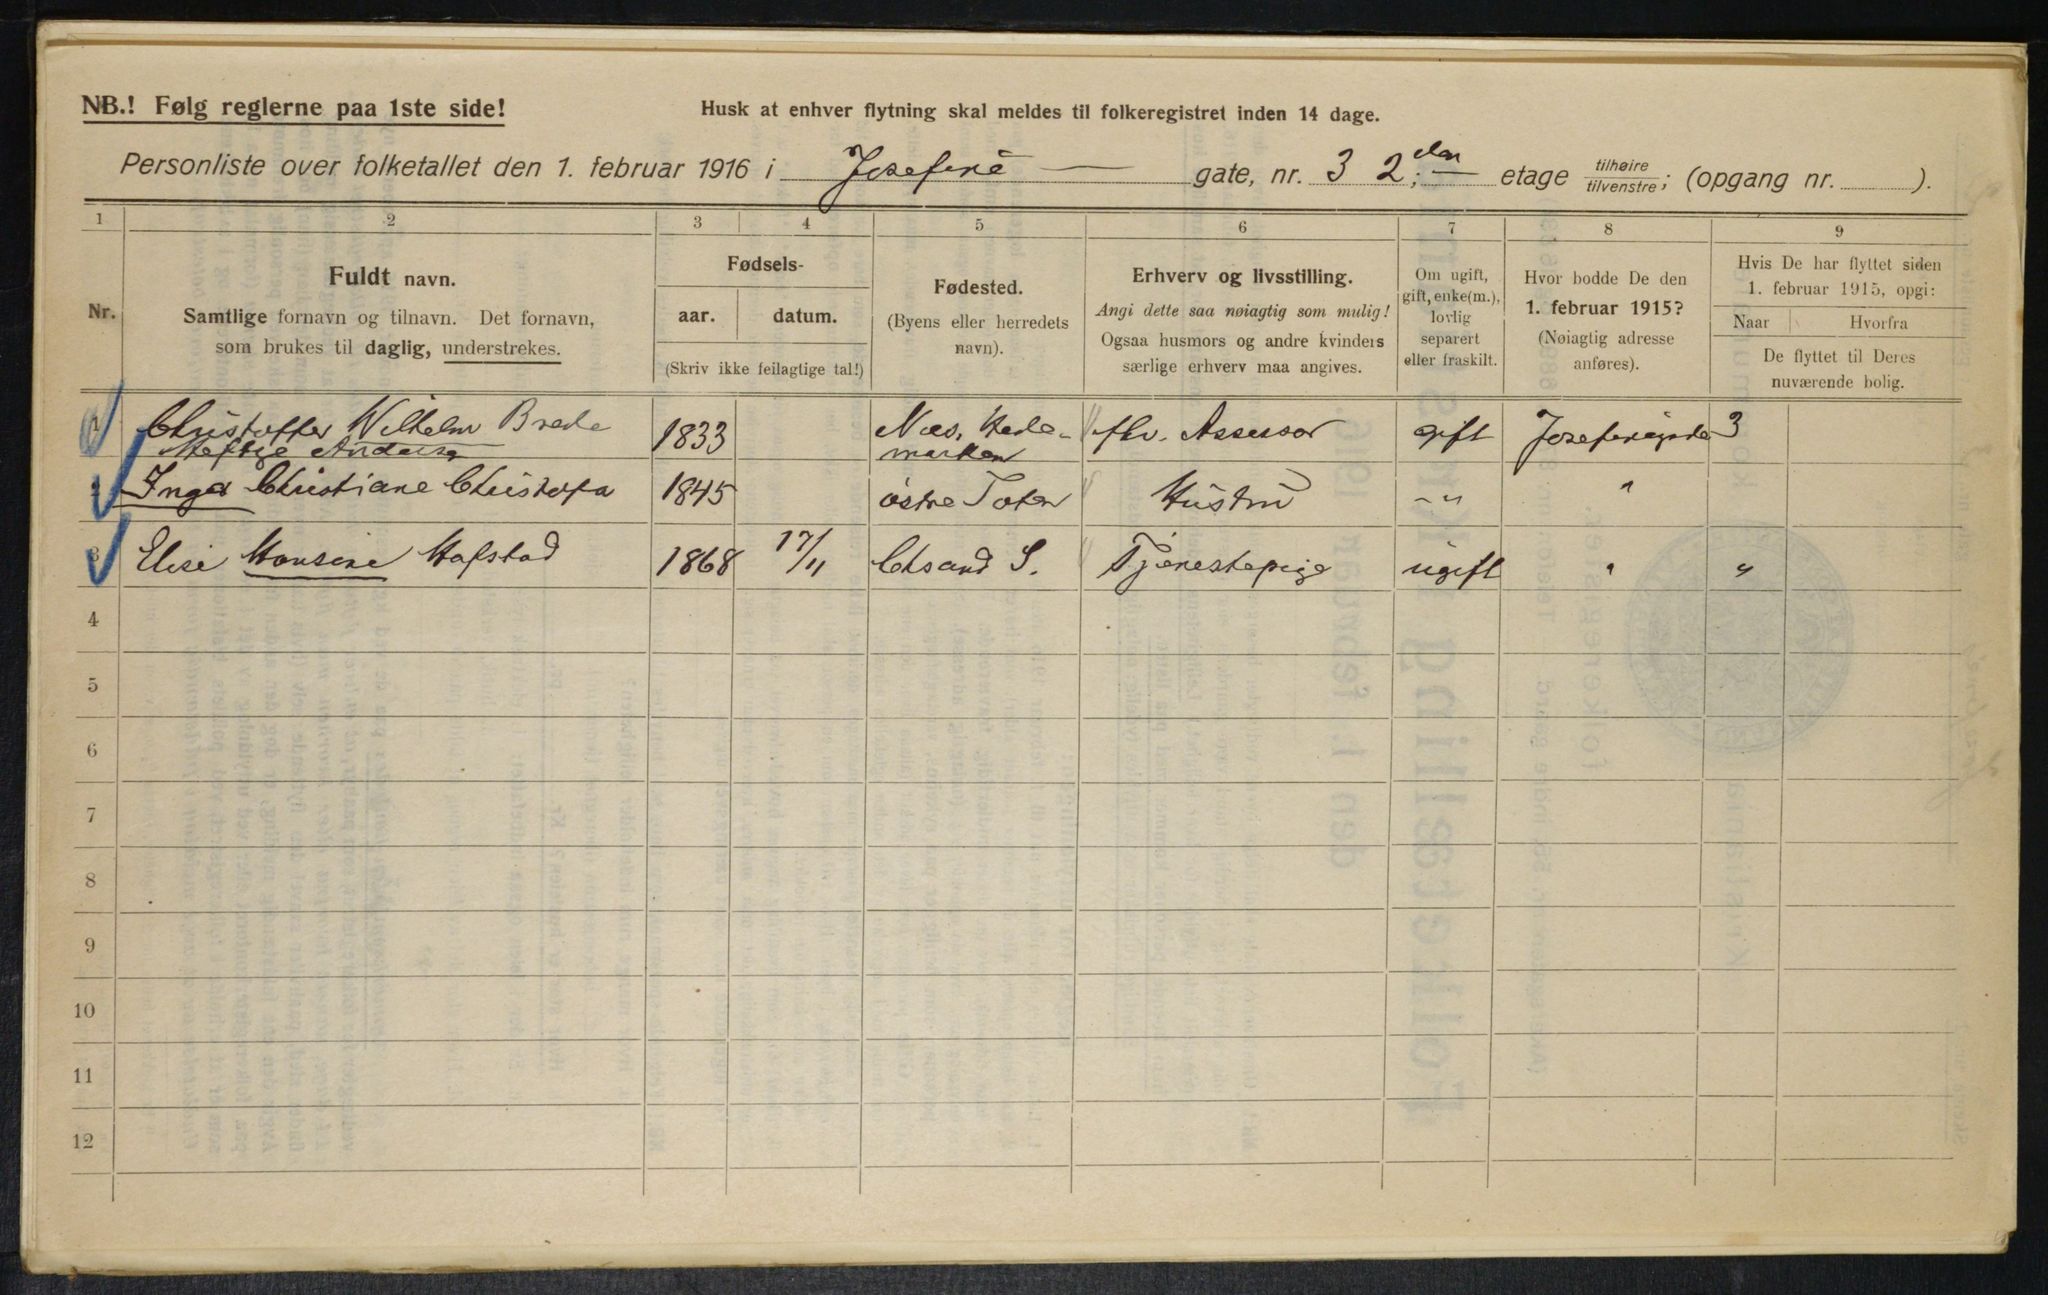 NB.! Følg reglerne paa 1ste side!
Husk at enhver flytning skal meldes til folkeregistret inden 14 dage.
Personliste over folketallet den 1. februar 1916 i Josefine — gate, nr. 3 2den; etage tilhøire/tilvenstre; (opgang nr. ).
1 2 3 4 5 6 7 8 9
Nr.
Fuldt navn.
Samtlige fornavn og tilnavn. Det fornavn,
som brukes til daglig, understrekes.
Fødsels-
aar. datum.
(Skriv ikke feilagtige tal!)
Fødested.
(Byens eller herredets
navn).
Erhverv og livsstilling.
Angi dette saa nøiagtig som mulig!
Ogsaa husmors og andre kvinders
særlige erhverv maa angives.
Om ugift,
gift, enke(m.),
lovlig
separert
eller fraskilt.
Hvor bodde De den
1. februar 1915?
(Nøiagtig adresse
anføres).
Hvis De har flyttet siden
1. februar 1915, opgi:
Naar Hvorfra
De flyttet til Deres
nuværende bolig.
1 Christoffer Wilhelm Brede 1833 Næs, Hede- fhv. Assessor gift Josefinegade 3
Heftye Andersen marken
2 Inga Christiane Christofa 1845 østre Toten Hustru -"- "
3 Elise Hansine Hafstad 1868 17/11 Chsand S. Tjenestepige ugift " "
4
5
6
7
8
9
10
11
12